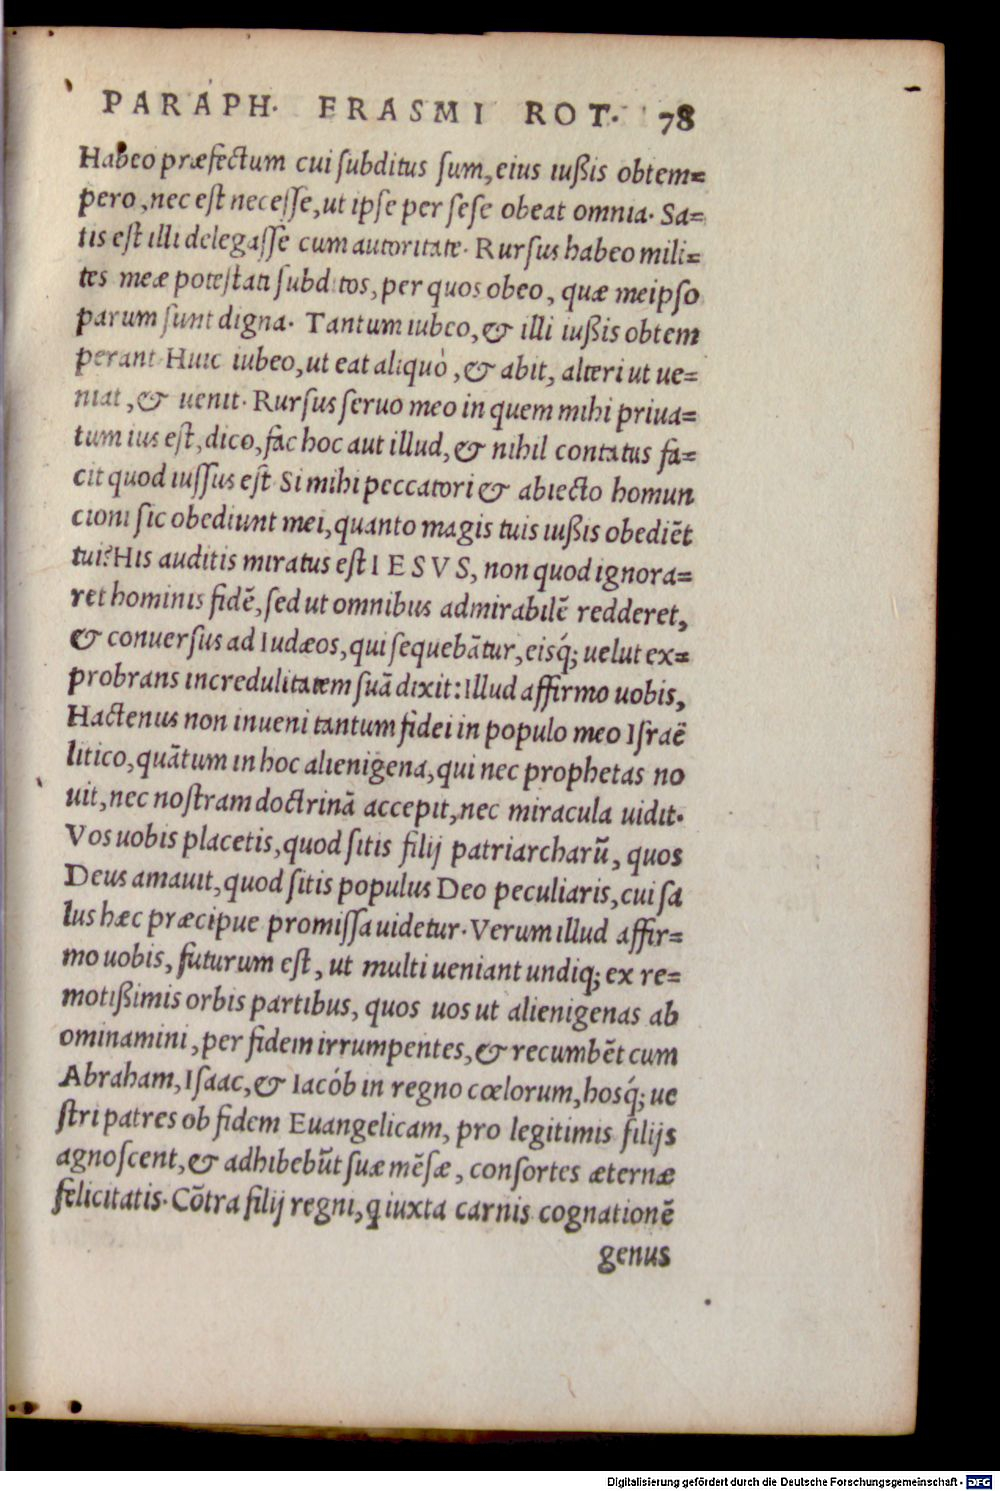 PARAPH. ERASMI ROT. 78
Habeo præfectum cui ſubditus ſum, eius iußis obtem=
pero, nec eſt neceſſe, ut ipſe per ſeſe obeat omnia. Sa=
tis eſt illi delegaſſe cum autoritate. Rurſus habeo mili=
tes meæ poteſtati ſubditos, per quos obeo, quæ meipſo
parum ſunt digna. Tantum iubeo, & illi iußis obtem
perant. Huic iubeo, ut eat aliquò, & abit, alteri ut ue=
niat, & uenit. Rurſus ſeruo meo in quem mihi priua=
tum ius eſt, dico, fac hoc aut illud, & nihil contatus fa=
cit quod iuſſus eſt. Si mihi peccatori & abiecto homun
cioni ſic obediunt mei, quanto magis tuis iußis obediẽt
tui? His auditis miratus eſt IESVS, non quod ignora=
ret hominis fidẽ, ſed ut omnibus admirabilẽ redderet,
& conuerſus ad Iudæos, qui ſequebãtur, eisq́; uelut ex=
probrans incredulitatem ſuã dixit: Illud affirmo uobis,
Hactenus non inueni tantum fidei in populo meo Iſraë
litico, quãtum in hoc alienigena, qui nec prophetas no
uit, nec noſtram doctrinã accepit, nec miracula uidit.
Vos uobis placetis, quod ſitis filij patriarcharũ, quos
Deus amauit, quod ſitis populus Deo peculiaris, cui ſa
lus hæc præcipue promiſſa uidetur. Verum illud affir=
mo uobis, futurum eſt, ut multi ueniant undiq; ex re=
motißimis orbis partibus, quos uos ut alienigenas ab
ominamini, per fidem irrumpentes, & recumbẽt cum
Abraham, Iſaac, & Iacób in regno cœlorum, hosq́; ue
ſtri patres ob fidem Euangelicam, pro legitimis filijs
agnoſcent, & adhibebũt ſuæ mẽſæ, conſortes æternæ
felicitatis. Cõtra filij regni, q iuxta carnis cognationẽ
genus
Digitalisierung gefördert durch die Deutsche Forschungsgemeinschaft - DFG